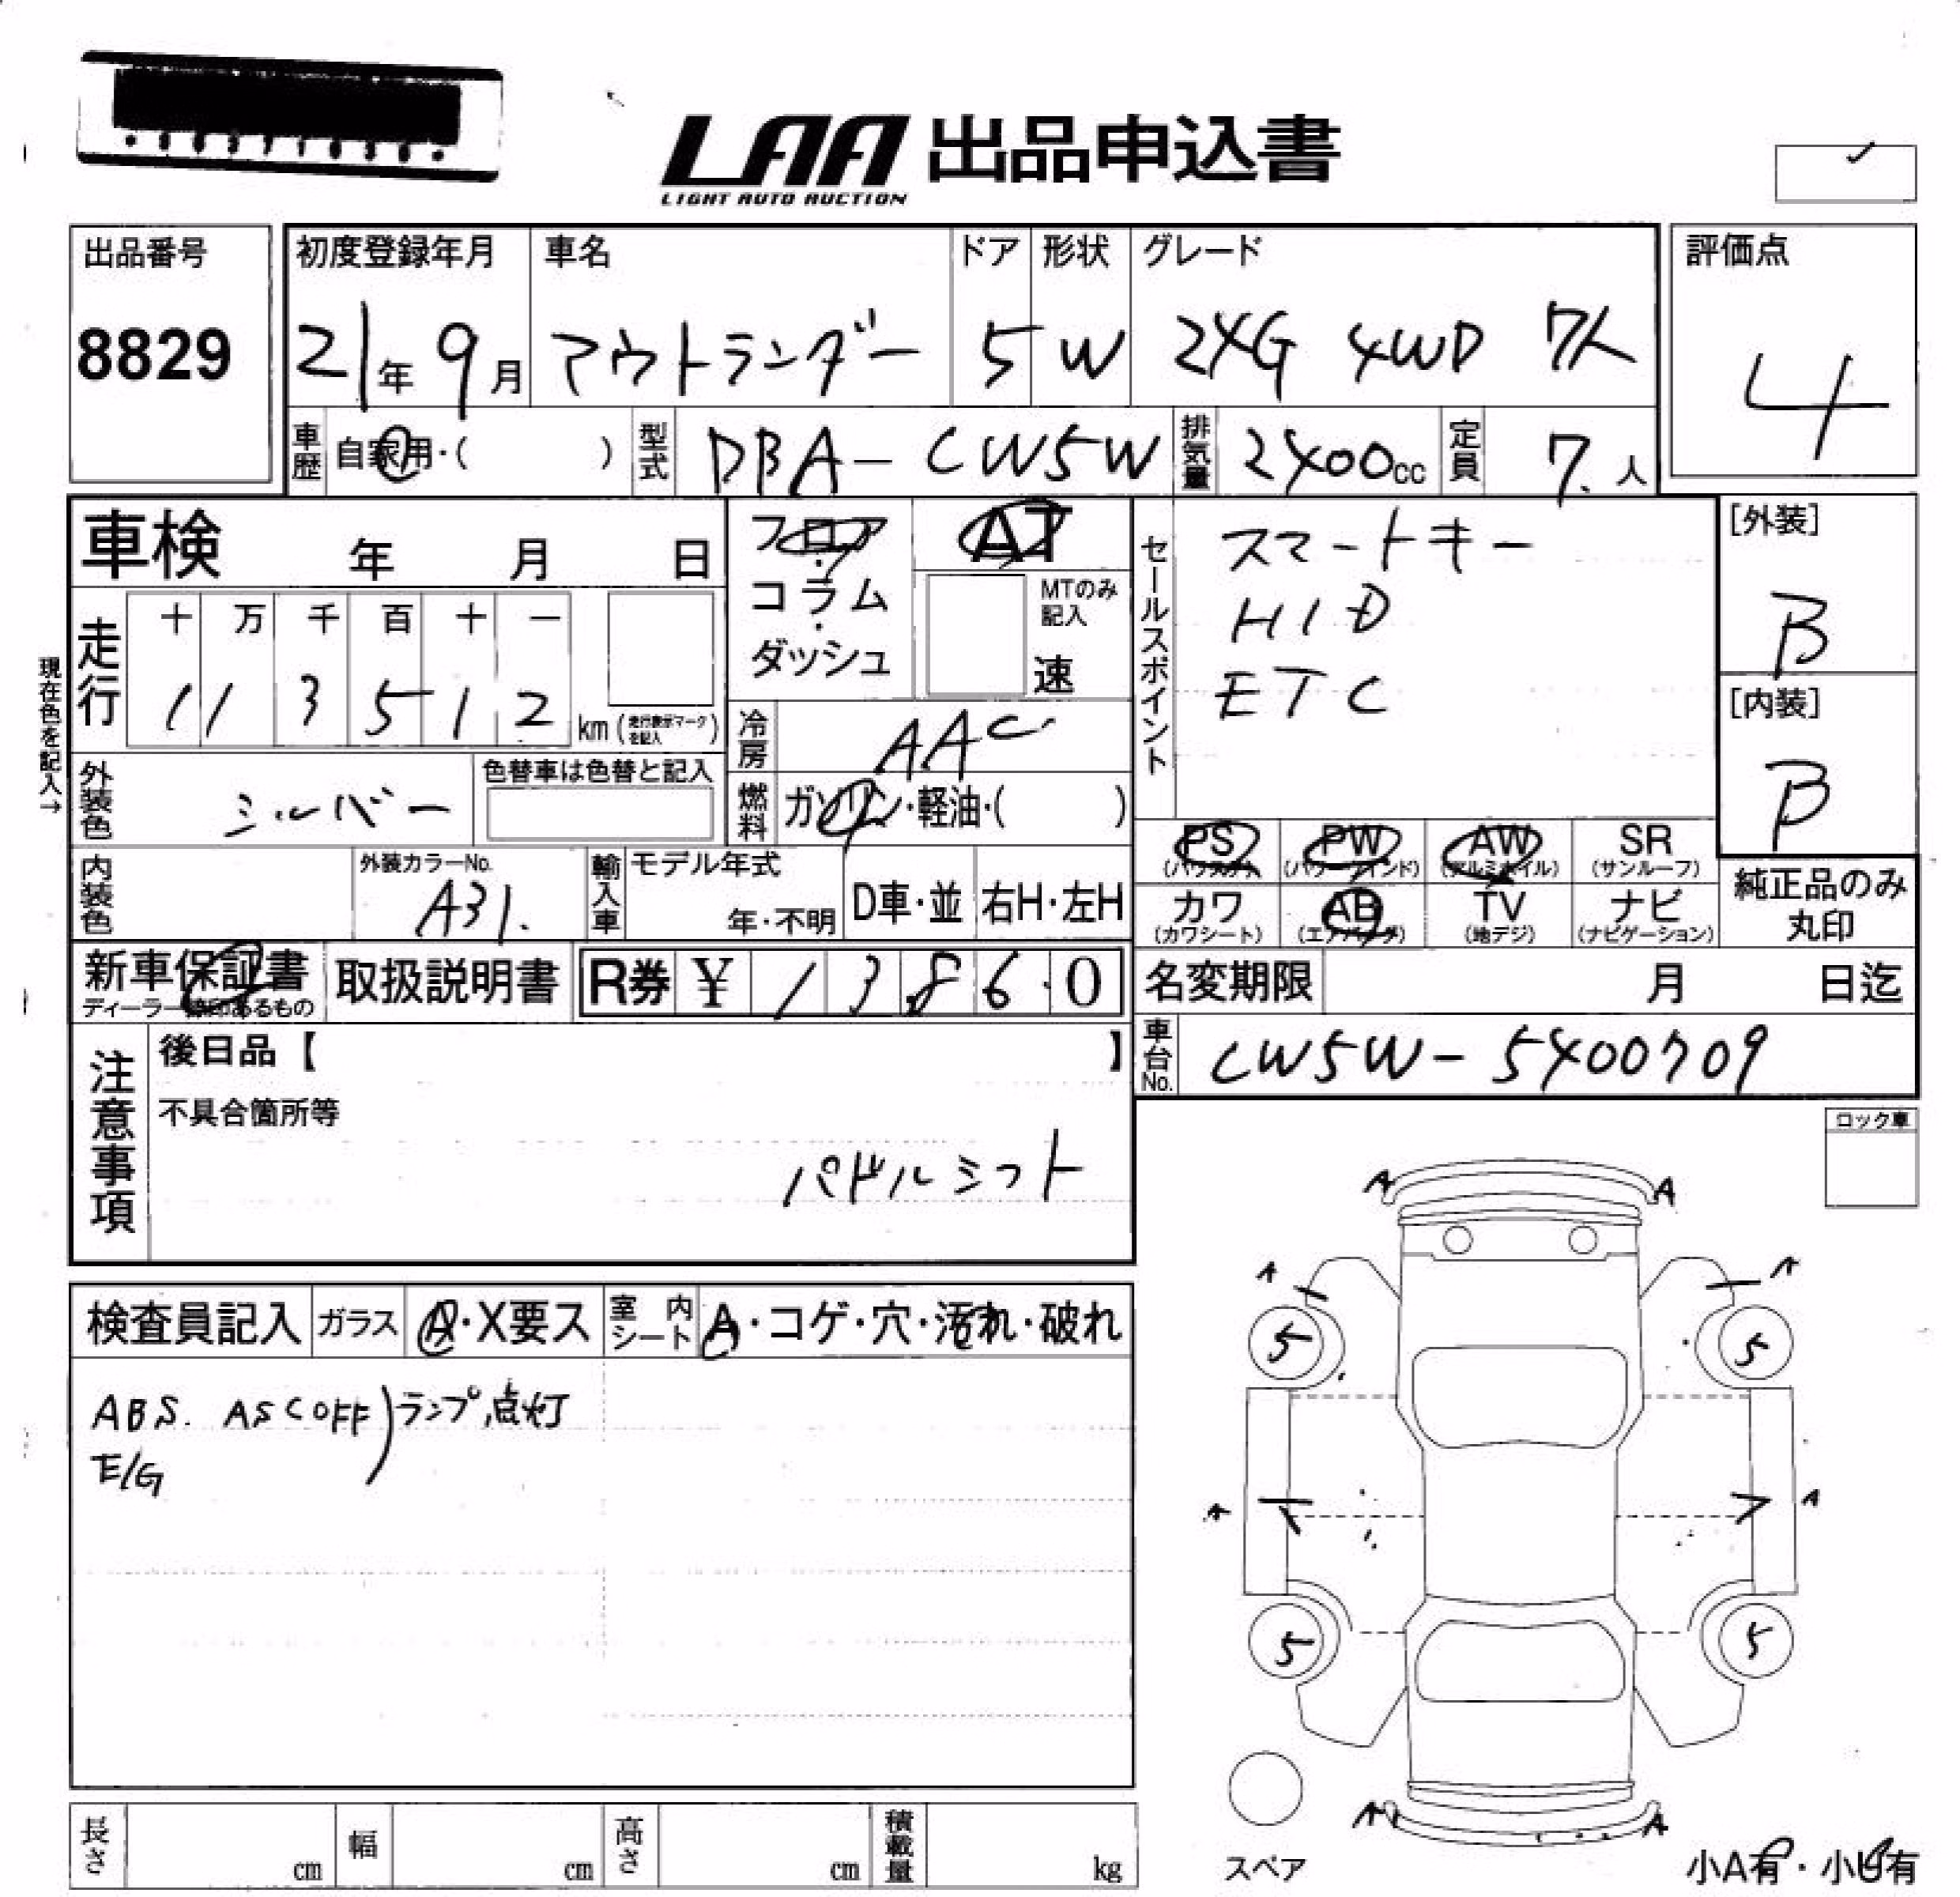 LAA 出品申込書
LIGHT AUTO AUCTION
出品番号
8829
初度登録年月 車名 ドア 形状 グレード
21年 9月 アウトランダー 5 W 24G 4WD 7人
評価点
4
車歴 自家用・( ) 型式 DBA-CW5W 排気量 2400cc 定員 7人
車検 年 月 日
フロア・コラム・ダッシュ
AT
MTのみ記入
速
セールスポイント
スマートキー
HID
ETC
[外装]
B
[内装]
B
走行 十 万 千 百 十 一
1 1 3 5 1 2 km (走行表示マークを記入)
現在色を記入→
冷房 AAC
外装色 シルバー 色替車は色替と記入
燃料 ガソリン・軽油・( )
内装色 外装カラーNo. A31.
輸入車 モデル年式 年・不明 D車・並 右H・左H
PS (パワステ) PW (パワーウインド) AW (アルミホイル) SR (サンルーフ)
カワ (カワシート) AB (エアバッグ) TV (地デジ) ナビ (ナビゲーション)
純正品のみ丸印
新車保証書 ディーラー捺印あるもの 取扱説明書 R券 ¥ 13860
名変期限 月 日迄
車台No. CW5W-5400709
注意事項
後日品【 】
不具合箇所等
パドルシフト
ロック車
検査員記入 ガラス A・X要ス 室内シート A・コゲ・穴・汚れ・破れ
ABS. ASC OFF)ランプ点灯
E/G
A A
A A
5 5
A A
5 5
A A
スペア
小A有・小U有
長さ cm 幅 cm 高さ cm 積載量 kg